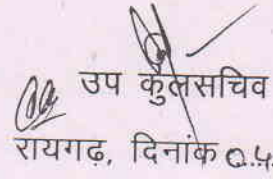 उप कुलसचिव
रायगढ़, दिनांक 04.